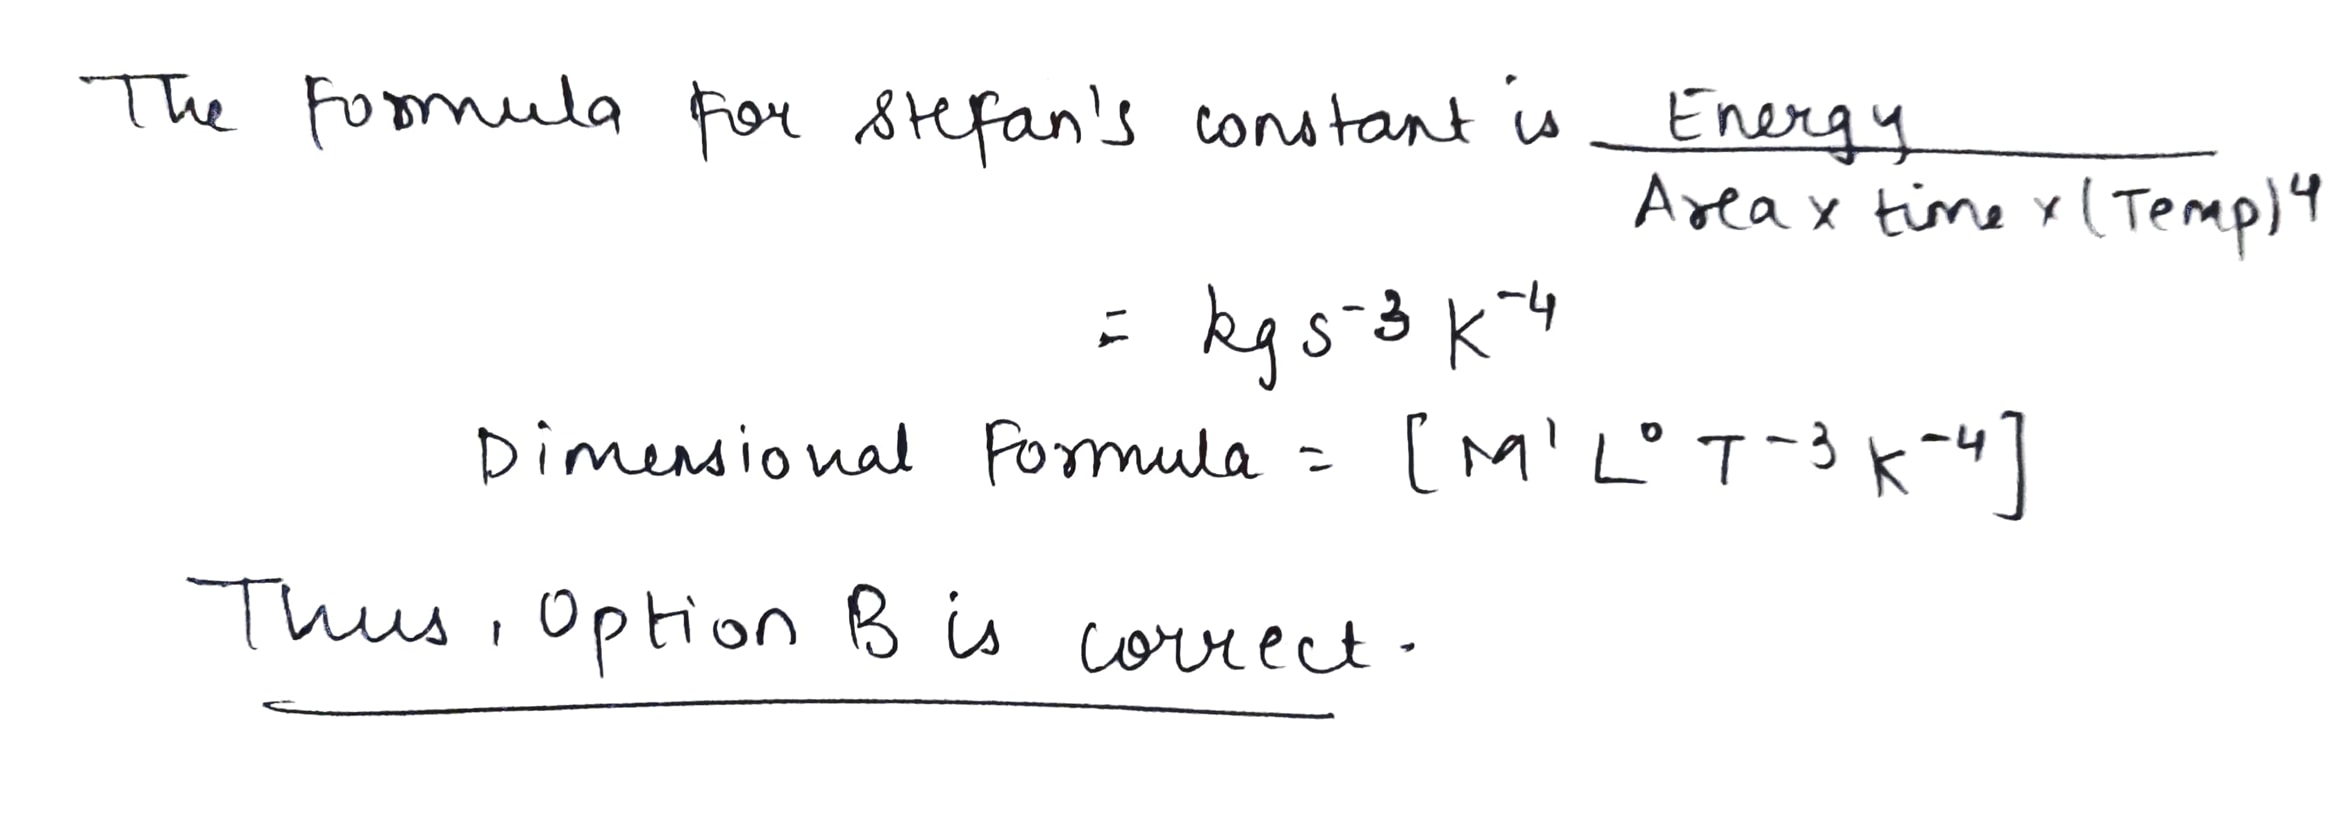 The Formula for Stefan's constant is Energy / Area x time x (Temp)⁴
= kg s⁻³ K⁻⁴
Dimensional Formula = [M¹ L⁰ T⁻³ K⁻⁴]
Thus, Option B is correct.